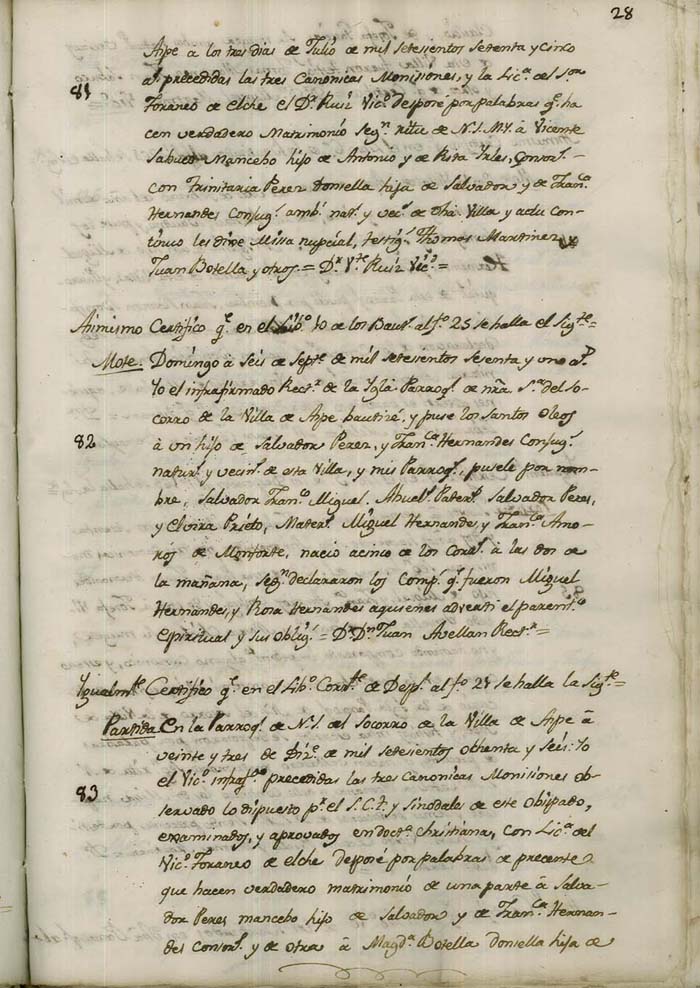 28
Aspe à los tres dias de Julio de mil setesientos setenta y cinco
as. precedidas las tres Canonicas Monisiones, y la Lica. del Sor.
81
Foraneo de elche el Dr. Ruiz Vico. desposé por palabras qe. ha
cen verdadero Matrimonio Segn. ritu de N.S.M.Y. à Vicente
Sabuco Mancebo hijo de Antonio y de Rita Yrles, Consors.
con Trinitaria Perez donsella hija de Salvador y de Franca.
Hernandes Conjugs. ambs. nats. y vecs. de dha. Villa, y actu con-
tinuo les dixe Missa nupcial, testigs. Thomas Martinez
Juan Botella y otros = Dr. Vte. Ruiz Vico. =
Asimismo Certifico qe. en el Libo. 10 de los Bauts. al fo. 25 se halla el Sigte. =
Mote. Domingo à Seis de Septe. de mil setesientos sesenta y uno as.
Yo el infrafirmado Rectr. de la Ygla. Parroql. de nra. Sa. del So-
corro de la Villa de Aspe bautizé, y puse los santos oleos
82
à un hijo de Salvador Perez, y Franca. Hernandes Conjugs.
naturs. y vecins. de esta Villa, y mis Parroqs., pusele por nom-
bre, Salvador Franco. Miguel. Abuels. Paters. Salvador Peres,
y Elvira Prieto, Maters. Miguel Hernandes, y Franca. Amo-
rós de Monforte, nacio a cinco de los Corrs. à las dos de
la mañana, Segn. declararon los Comps. qe. fueron Miguel
Hernandes, y Rosa Hernandes aquienes adverti el parento.
Espiritual y sus obligs. = Dr. Dn. Juan Avellan Rectr. =
Ygualmte. Certifico qe. en el Libo. Corrte. de Desps. al fo. 28 se halla la Sigte. =
Partida En la Parroql. de N.S. del Socorro de la Villa de Aspe à
veinte y tres de Dize. de mil setesientos ochenta y seis: Yo
el Vico. infrafdo. precedidas las tres Canonicas Monisiones ob-
83
servado lo dispuesto pr. el S.C.T. y Sinodales de este Obispado,
examinados, y aprovados en docta. Christiana, con Lica. del
Vico. Foraneo de elche desposé por palabras de precente
que hacen verdadero matrimonio de una parte à Salva-
dor Peres mancebo hijo de Salvador y de Franca. Hernan-
des Consors. y de otra à Magda. Botella donsella hija de